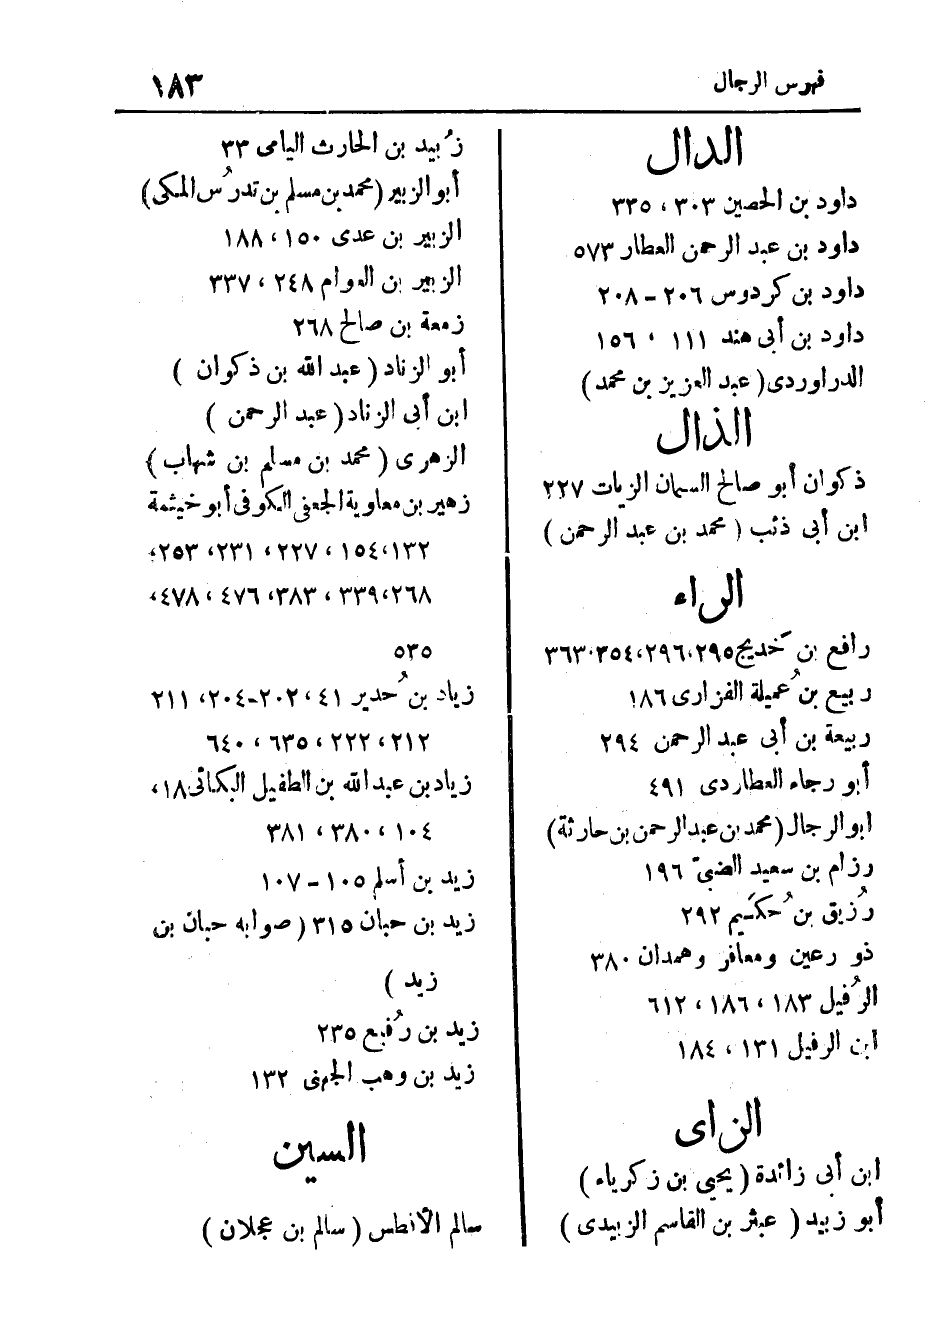 فهرس الرجال
١٨٣
الدال
داود بن الحصين ٣٠٣ ، ٣٣٥
داود بن عبد الرحمن العطار ٥٧٣
داود بن كردوس ٢٠٦ – ٢٠٨
داود بن أبى هند ١١١ ، ١٥٦
الدراوردى ( عبد العزيز بن محمد )
الذال
ذكوان أبو صالح السمان الزيات ٢٢٧
ابن أبى ذئب ( محمد بن عبد الرحمن )
الراء
رافع بن خَديج ٢٩٥، ٢٩٦، ٣٥٤، ٣٦٣
ربيع بن عُميلة الفزارى ١٨٦
ربيعة بن أبى عبد الرحمن ٢٩٤
أبو رجاء العطاردى ٤٩١
ابو الرجال (محمد بن عبد الرحمن بن حارثة)
رزام بن سعيد الضبىّ ١٩٦
رُزيق بن حُكَيم ٢٩٢
ذو رعين ومعافر وهمدان ٣٨٠
الرُفيل ١٨٣ ، ١٨٦ ، ٦١٢
ابن الرفيل ١٣١ ، ١٨٤
الزاى
ابن أبى زائدة ( يحيى بن زكرياء )
أبو زبيد ( عبثر بن القاسم الزبيدى )
زُبيد بن الحارث اليامى ٣٣
أبو الزبير (محمد بن مسلم بن تدرُس المكى)
الزبير بن عدى ١٥٠ ، ١٨٨
الزبير بن العوام ٢٤٨ ، ٣٣٧
زمعة بن صالح ٢٦٨
أبو الزناد ( عبد الله بن ذكوان )
ابن أبى الزناد ( عبد الرحمن )
الزهرى ( محمد بن مسلم بن شهاب )
زهير بن معاوية الجعفى الكوفى أبو خيثمة
١٣٢، ١٥٤ ، ٢٢٧ ، ٢٣١، ٢٥٣،
٢٦٨، ٣٣٩ ، ٣٨٣، ٤٧٦ ، ٤٧٨،
٥٣٥
زياد بن حُدير ٤١ ، ٢٠٢-٢٠٤، ٢١١
٢١٢، ٢٢٢ ، ٦٣٥ ، ٦٤٠
زياد بن عبد الله بن الطفيل البكائى ١٨،
١٠٤ ، ٣٨٠ ، ٣٨١
زيد بن أسلم ١٠٥ – ١٠٧
زيد بن حبان ٣١٥ ( صوابه حبان بن
زيد )
زيد بن رُفيع ٢٣٥
زيد بن وهب الجهنى ١٣٢
السين
سالم الأفطس ( سالم بن عجلان )